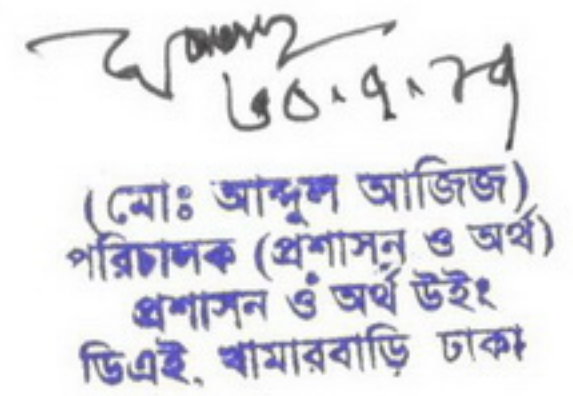 ৩০.৭.১৭
(মোঃ আব্দুল আজিজ)
পরিচালক (প্রশাসন ও অর্থ)
প্রশাসন ও অর্থ উইং
ডিএই, খামারবাড়ি ঢাকা